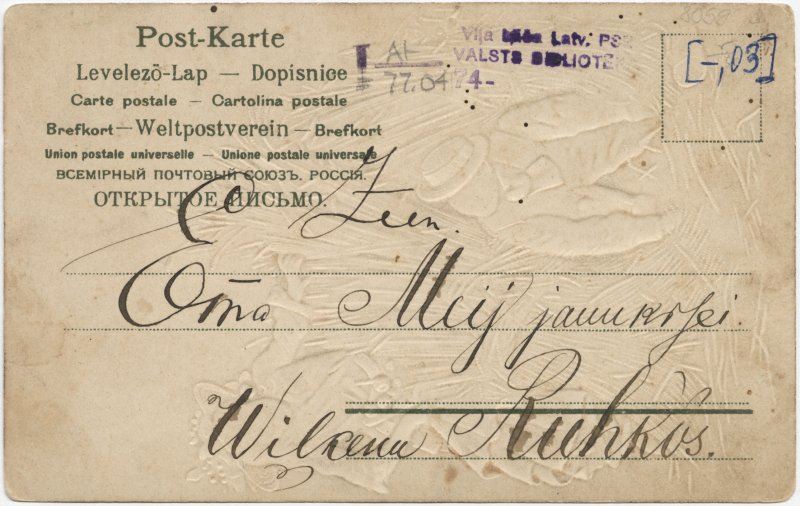 Post-Karte
Levelező-Lap — Dopisnice
Carte postale — Cartolina postale
Brefkort — Weltpostverein — Brefkort
Union postale universelle — Unione postale universale
ВСЕМІРНЫЙ ПОЧТОВЫЙ СОЮЗЪ. РОССІЯ.
ОТКРЫТОЕ ПИСЬМО.
AI-
77.04
Viļa Lāča Latv. PSR
VALSTS BIBLIOTĒK
74-
[-,03]
Zeen.
Emma Meij jaunkrſei.
Wilzenu
Ruhkõs.